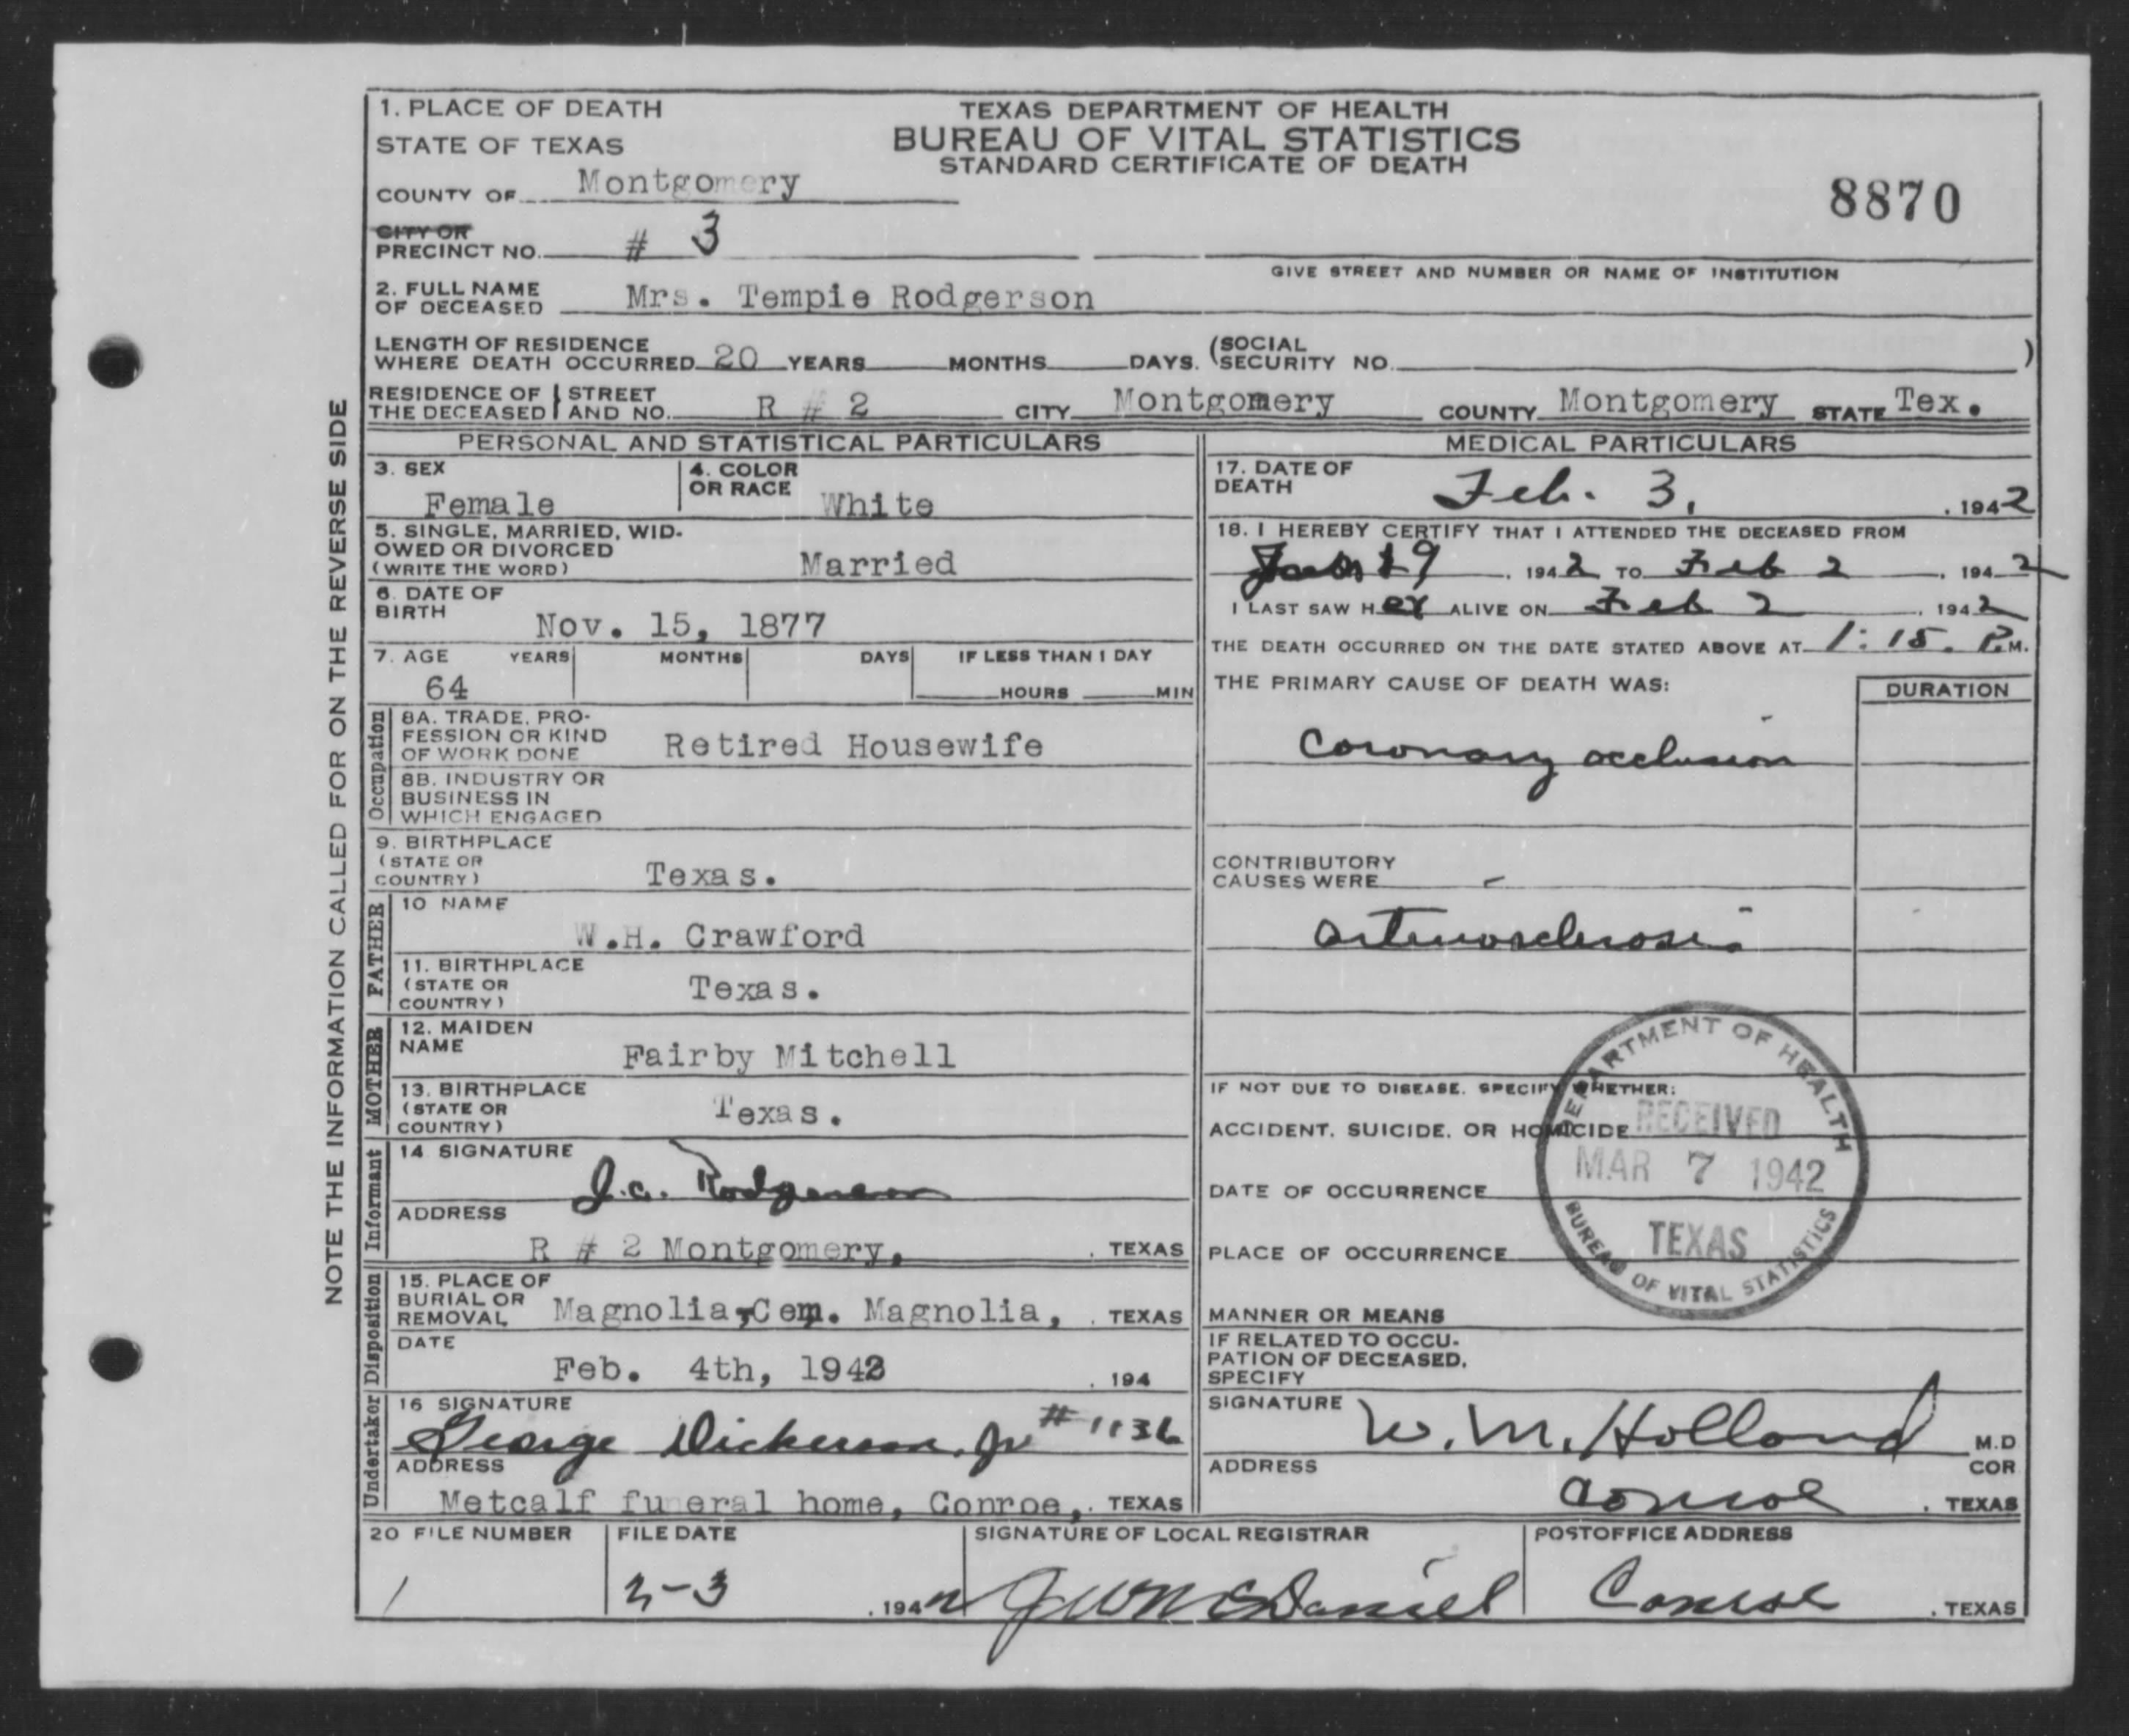 1. PLACE OF DEATH
STATE OF TEXAS
COUNTY OF Montgomery
TEXAS DEPARTMENT OF HEALTH
BUREAU OF VITAL STATISTICS
STANDARD CERTIFICATE OF DEATH
8870
CITY OR
PRECINCT NO. # 3
GIVE STREET AND NUMBER OR NAME OF INSTITUTION
2. FULL NAME
OF DECEASED Mrs. Tempie Rodgerson
LENGTH OF RESIDENCE
WHERE DEATH OCCURRED 20 YEARS MONTHS DAYS. (SOCIAL
SECURITY NO. )
RESIDENCE OF THE DECEASED STREET AND NO. R # 2 CITY Montgomery COUNTY Montgomery STATE Tex.
NOTE THE INFORMATION CALLED FOR ON THE REVERSE SIDE
PERSONAL AND STATISTICAL PARTICULARS
3. SEX
Female
4. COLOR
OR RACE White
5. SINGLE, MARRIED, WID-
OWED OR DIVORCED
(WRITE THE WORD) Married
6. DATE OF
BIRTH Nov. 15, 1877
7. AGE YEARS MONTHS DAYS IF LESS THAN 1 DAY
64 HOURS MIN
Occupation
8A. TRADE, PRO-
FESSION OR KIND
OF WORK DONE Retired Housewife
8B. INDUSTRY OR
BUSINESS IN
WHICH ENGAGED
9. BIRTHPLACE
(STATE OR
COUNTRY) Texas.
FATHER
10 NAME
W.H. Crawford
11. BIRTHPLACE
(STATE OR
COUNTRY) Texas.
MOTHER
12. MAIDEN
NAME Fairby Mitchell
13. BIRTHPLACE
(STATE OR
COUNTRY) Texas.
Informant
14 SIGNATURE
J.C. Rodgerson
ADDRESS
R # 2 Montgomery, . TEXAS
Disposition
15. PLACE OF
BURIAL OR
REMOVAL Magnolia,Cem. Magnolia, . TEXAS
DATE
Feb. 4th, 1942 . 194
Undertaker
16 SIGNATURE
George Dickerson, Jr #1136
ADDRESS
Metcalf funeral home, Conroe, . TEXAS
MEDICAL PARTICULARS
17. DATE OF
DEATH Feb. 3, , 1942
18. I HEREBY CERTIFY THAT I ATTENDED THE DECEASED FROM
, 1942 TO Feb 2 , 1942
I LAST SAW Her ALIVE ON Feb 2 , 1942
THE DEATH OCCURRED ON THE DATE STATED ABOVE AT 1:15. P.M.
THE PRIMARY CAUSE OF DEATH WAS:
DURATION
Coronary occlusion
CONTRIBUTORY
CAUSES WERE
Arteriosclerosis
IF NOT DUE TO DISEASE, SPECIFY WHETHER:
ACCIDENT, SUICIDE, OR HOMICIDE
DATE OF OCCURRENCE
PLACE OF OCCURRENCE
MANNER OR MEANS
IF RELATED TO OCCU-
PATION OF DECEASED,
SPECIFY
DEPARTMENT OF HEALTH
RECEIVED
MAR 7 1942
TEXAS
BUREAU OF VITAL STATISTICS
SIGNATURE W. M. Holland M.D
COR
ADDRESS
Conroe . TEXAS
20 FILE NUMBER FILE DATE SIGNATURE OF LOCAL REGISTRAR POSTOFFICE ADDRESS
1 2-3 , 1942 JW McDaniel Conroe . TEXAS